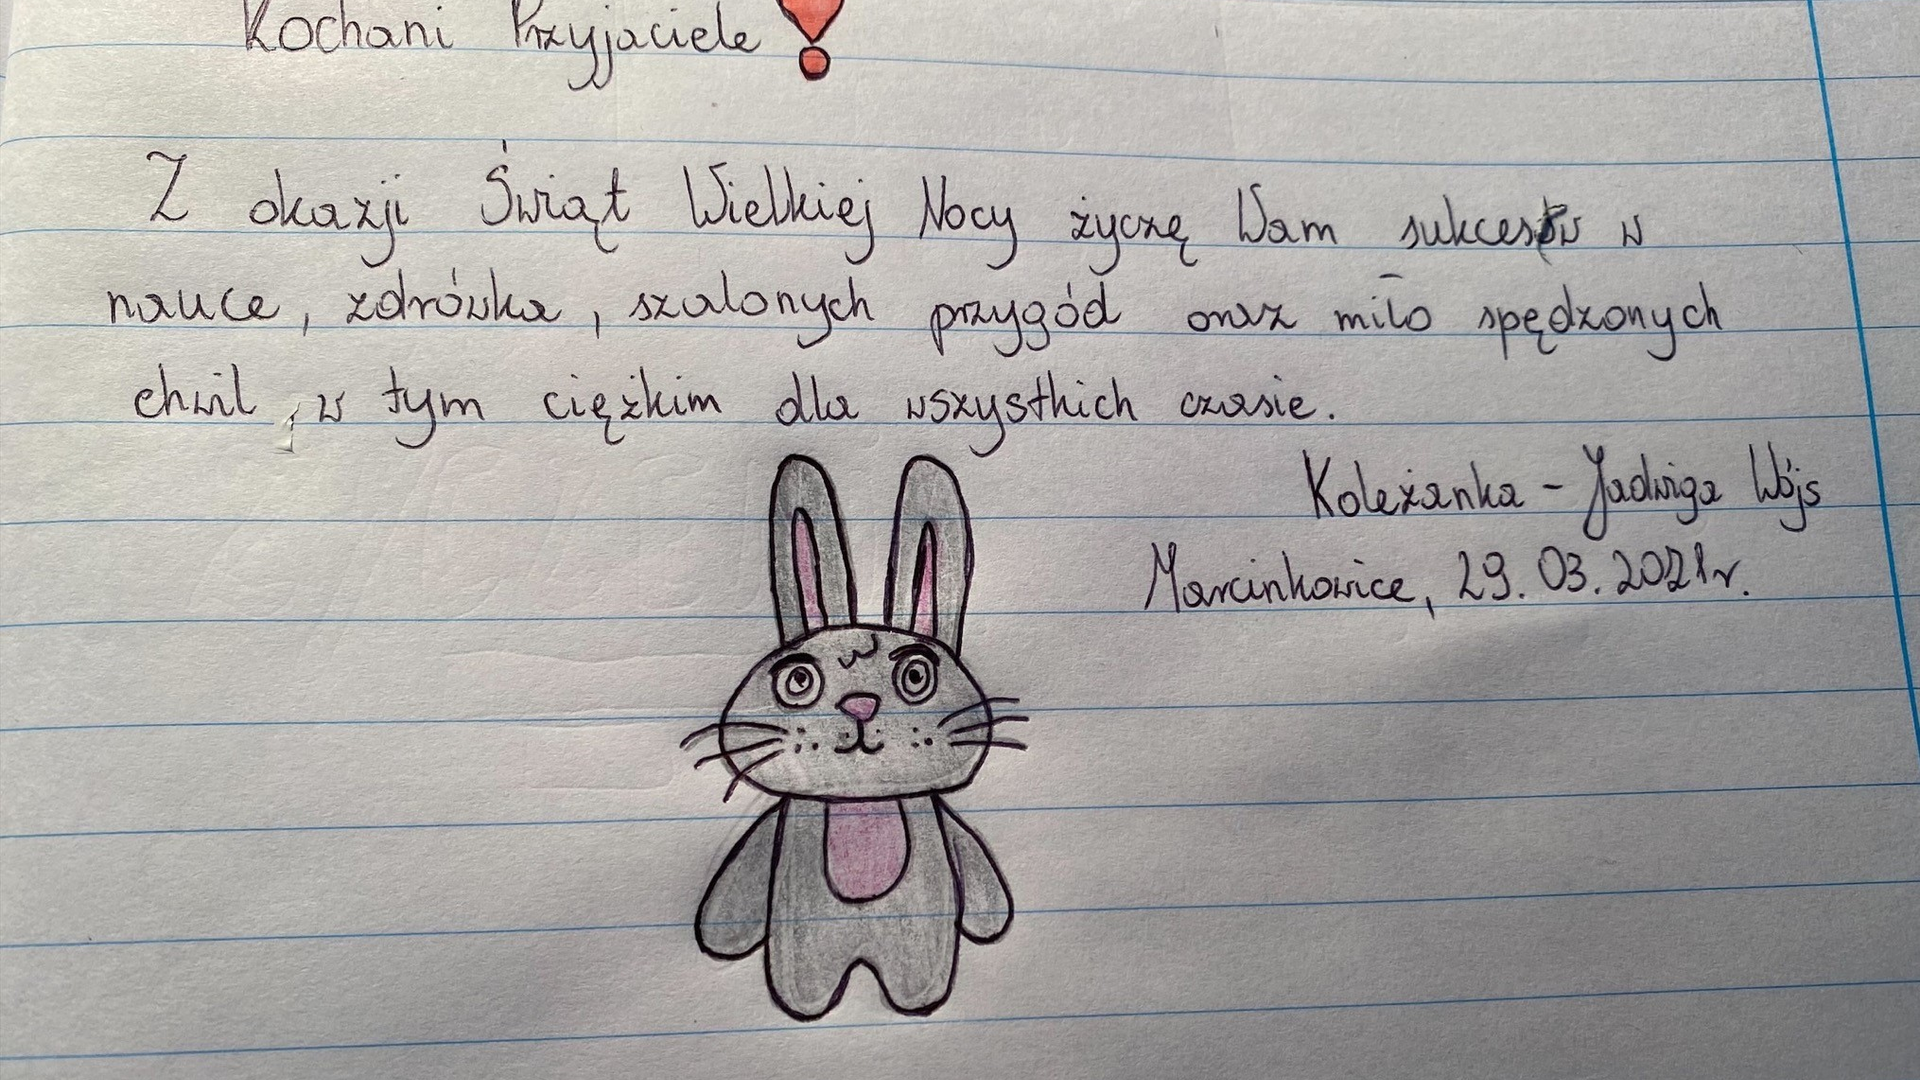 Kochani Przyjaciele❗
Z okazji Świąt Wielkiej Nocy życzę Wam sukcesów w
nauce, zdrówka, szalonych przygód oraz miło spędzonych
chwil w tym ciężkim dla wszystkich czasie.
Koleżanka - Jadwiga Wójs
Marcinkowice, 29.03.2021r.